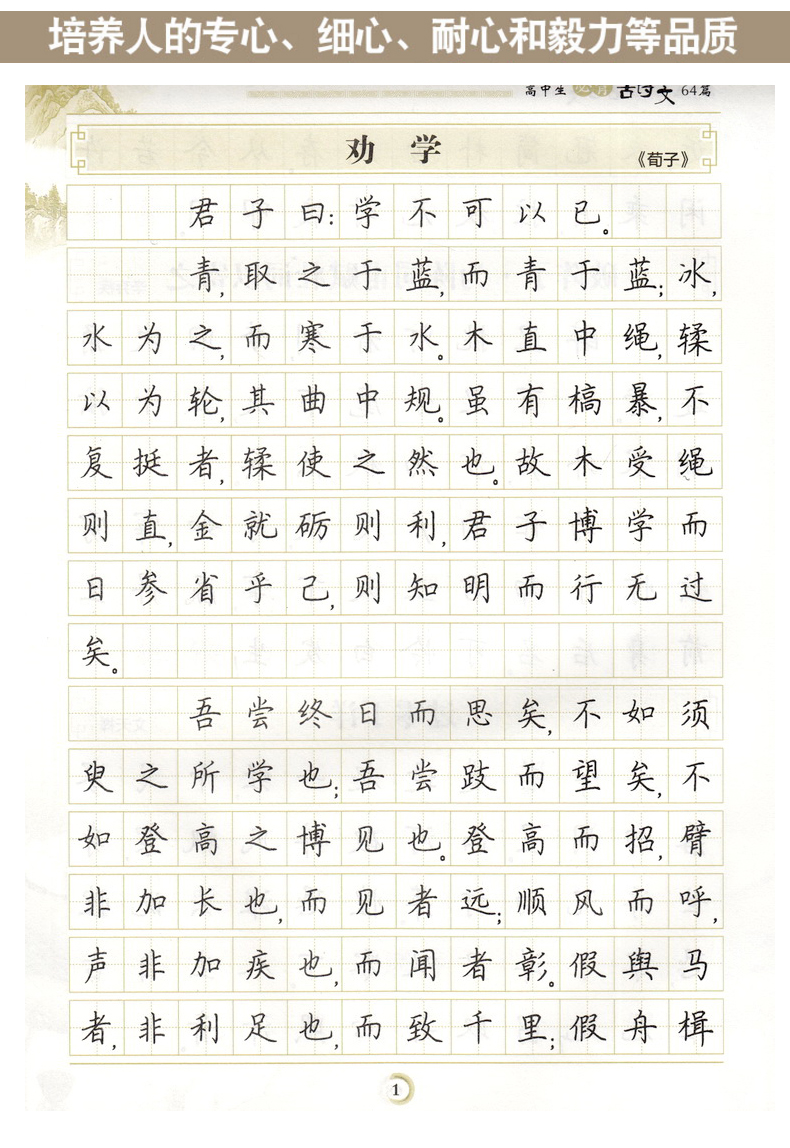 培养人的专心、细心、耐心和毅力等品质
高中生必背古诗文64篇
劝学
《荀子》
君子曰:学不可以已。
青,取之于蓝,而青于蓝;冰,
水为之,而寒于水。木直中绳,𫐓
以为轮,其曲中规。虽有槁暴,不
复挺者,𫐓使之然也。故木受绳
则直,金就砺则利,君子博学而
日参省乎己,则知明而行无过
矣。
吾尝终日而思矣,不如须
臾之所学也;吾尝跂而望矣,不
如登高之博见也。登高而招,臂
非加长也,而见者远;顺风而呼,
声非加疾也,而闻者彰。假舆马
者,非利足也,而致千里;假舟楫
1